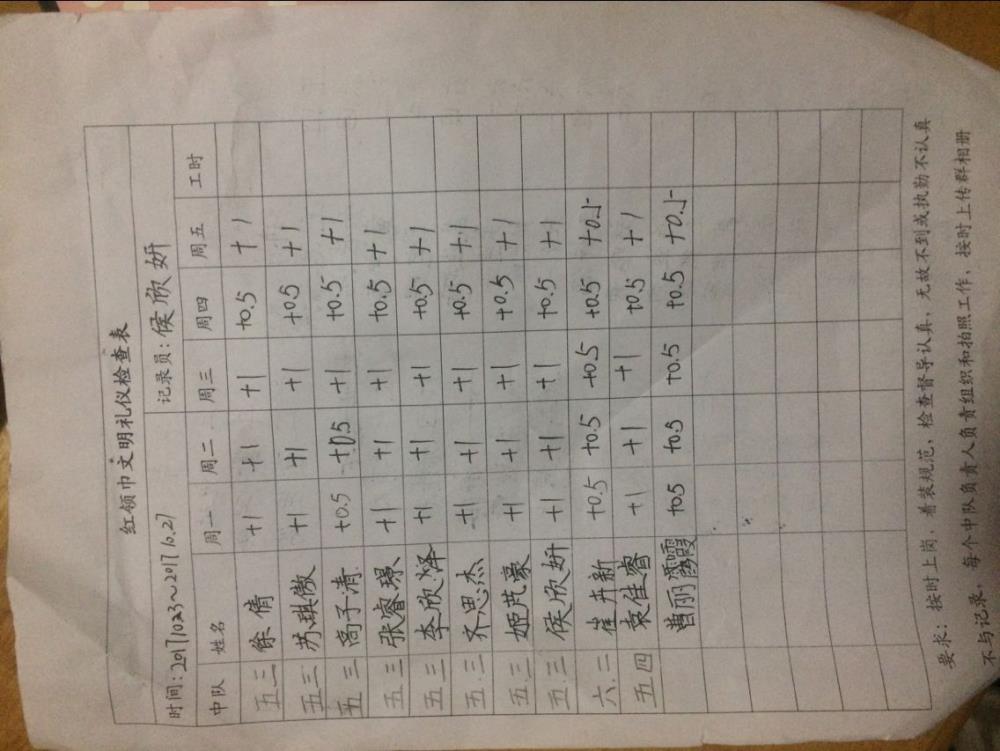 红领巾文明礼仪检查表
时间:20171023~2017.10.27 记录员:侯欣妍
中队 姓名 周一 周二 周三 周四 周五 工时
五.三 徐倩 +1 +1 +1 +0.5 +1
五三 苏琪傲 +1 +1 +1 +0.5 +1
五.三 高子清 +0.5 +0.5 +1 +0.5 +1
五.三 张睿璟 +1 +1 +1 +0.5 +1
五.三 李欣烨 +1 +1 +1 +0.5 +1
五.三 齐思杰 +1 +1 +1 +0.5 +1
五.三 姬芃豪 +1 +1 +1 +0.5 +1
五.三 侯欣妍 +1 +1 +1 +0.5 +1
六.二 崔卉新 +0.5 +0.5 +0.5 +0.5 +0.5
五四 袁佳睿 +1 +1 +1 +0.5 +1
曹丽霞 +0.5 +0.5 +0.5 +0.5 +0.5
要求:按时上岗,着装规范,检查督导认真,无故不到或执勤不认真
不与记录,每个中队负责人负责组织和拍照工作,按时上传群相册